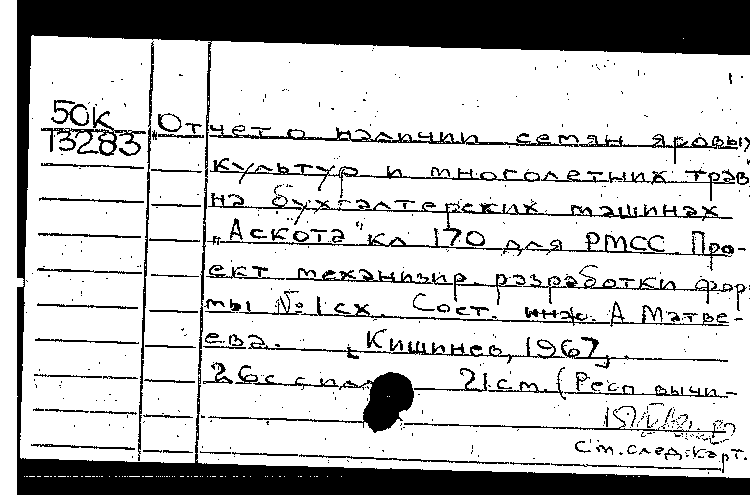 50к
13283
„Отчет о наличии семян яровых
культур и многолетних трав
на бухгалтерских машинах
„Аскота" кл 170 для РМСС. Про-
ект механизир. разработки фор-
мы №1 сх. Сост. инж. А Матве-
ева. [Кишинев, 1967].
26с с ил 21 см. (Респ вычи-
см. след. карт.